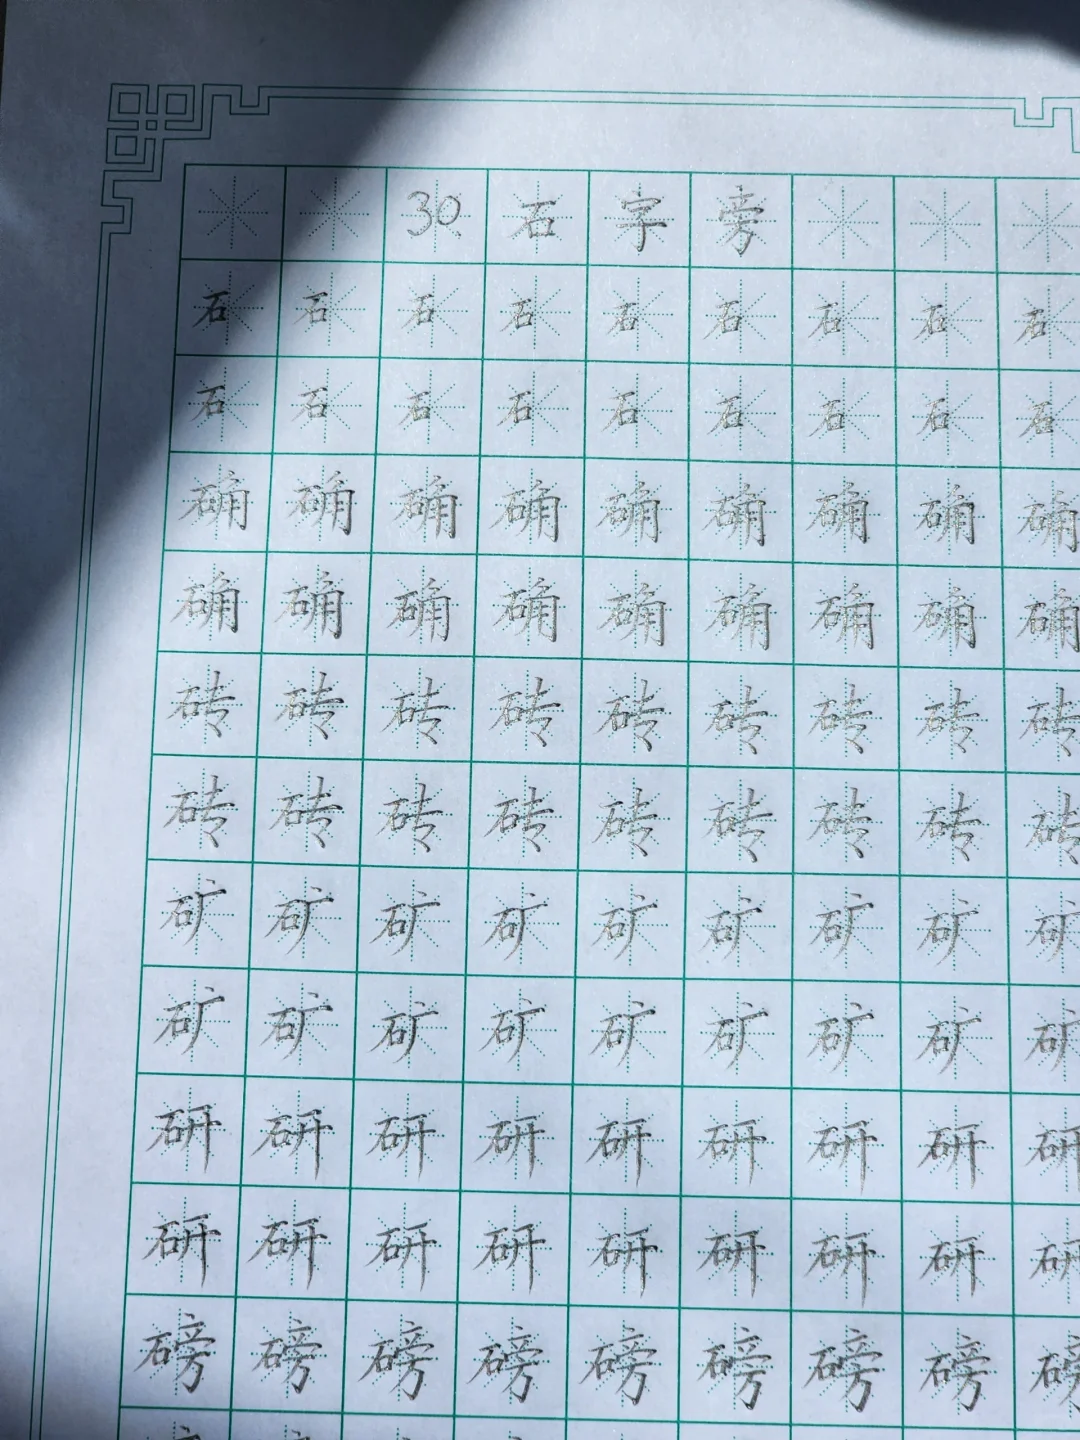 30石字旁
石石石石石石石石石
石石石石石石石石石
确确确确确确确确确
确确确确确确确确确
砖砖砖砖砖砖砖砖砖
砖砖砖砖砖砖砖砖砖
矿矿矿矿矿矿矿矿矿
矿矿矿矿矿矿矿矿矿
研研研研研研研研研
研研研研研研研研研
磅磅磅磅磅磅磅磅磅